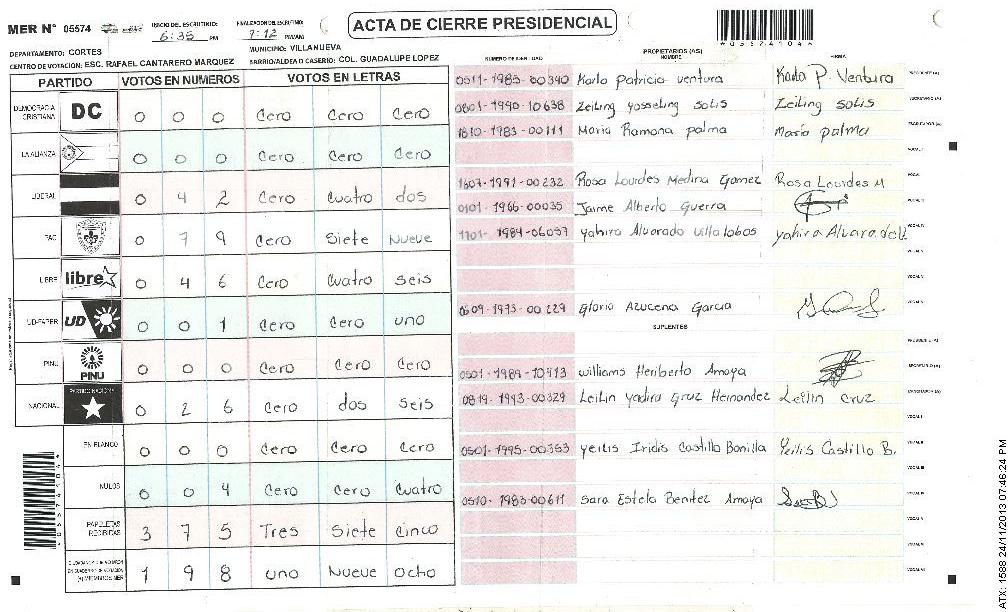 MER N° 05574 INICIO DEL ESCRUTINIO: 6:35 PM FINALIZACION DE ESCRUTINIO: 7:12 PM/AM
ACTA DE CIERRE PRESIDENCIAL
DEPARTAMENTO: CORTES MUNICIPIO: VILLANUEVA
CENTRO DE VOTACION: ESC. RAFAEL CANTARERO MARQUEZ BARRIO/ALDEA O CASERIO: COL. GUADALUPE LOPEZ
PARTIDO VOTOS EN NUMEROS VOTOS EN LETRAS
DEMOCRACIA CRISTIANA DC 0 0 0 Cero Cero Cero
LA ALIANZA 0 0 0 Cero Cero Cero
LIBERAL 0 4 2 Cero cuatro dos
PAC 0 7 9 Cero Siete Nueve
LIBRE libre 0 4 6 Cero Cuatro seis
UD-FAPER UD 0 0 1 Cero Cero uno
PINU PINU 0 0 0 Cero Cero Cero
NACIONAL PARTIDO NACIONAL 0 2 6 Cero dos Seis
EN BLANCO 0 0 0 Cero Cero Cero
NULOS 0 0 4 Cero Cero Cuatro
PAPELETAS RECIBIDAS 3 7 5 Tres Siete cinco
1 9 8 uno Nueve Ocho
NUMERO DE IDENTIDAD PROPIETARIOS (AS) NOMBRE FIRMA
0511-1983-00390 Karla patricia ventura Karla P. Ventura PRESIDENTE (A)
0801-1990-10638 Zeiling yosseling solis Zeiling solis SECRETARIO (A)
1810-1983-00111 Maria Ramona palma Maria palma ESCRUTADOR (A)
VOCAL I
1807-1991-00232 Rosa Lourdes Medina Gomez Rosa Lourdes M
0101-1966-00035 Jaime Alberto Guerra
1101-1984-06057 yahira Alvarado villalobos
0509-1973-00229 Gloria Azucena Garcia
SUPLENTES
0501-1989-10913 williams Heriberto Amaya SECRETARIO (A)
0819-1993-00329 Leilin yadira Cruz Hernandez Leilin Cruz
0501-1995-00353 yeilis Iridis Castillo Bonilla Yeilis Castillo B.
0510-1983-00611 sara Estela Benitez Amaya
ATX: 1588 24/11/2013 07:46:24 PM